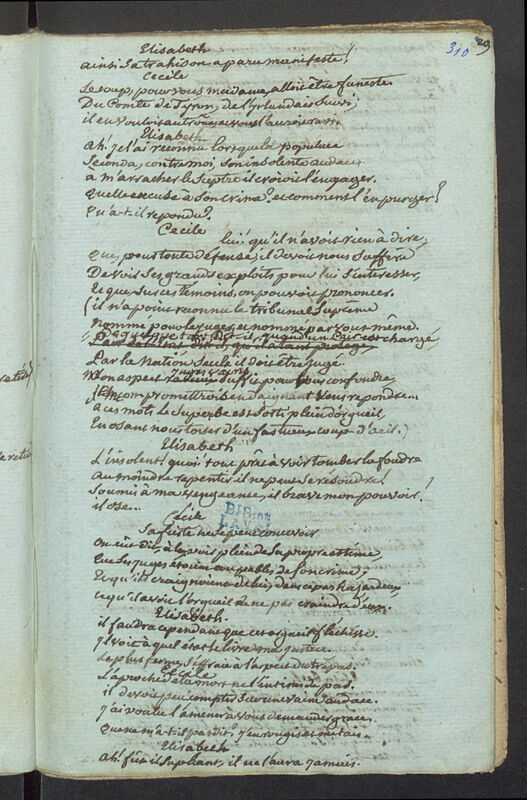 310
29
Elisabeth
ainsi Sa trahison a paru manifeste!
Cecile
Le coup, pour vous madame, alloit être funeste.
Du Comte de Tyron, de l'yrlandais Suivi,
il en vouloit au trône,
Elisabeth
ah! je l'ai reconnu lorsque la populace
Seconda, contre moi, Son insolente audace
a m'arracher le Sceptre il croioit l'engager.
quelle excuse à Son crime? et comment l'en purger?
qu'a-t-il repondu?
Cecile
lui? qu'il n'avoit rien à dire,
que, pour toute defense, il devoit nous Suffire
De voir Ses grands exploits pour lui S'interesser,
Et que Sur ces temoins, on pouvoit prononcer.
(il n'a point reconnu le tribunal Supreme
nommé pour le juger, et nommé par vous même.
quand un Pair est chargé,
Par la Nation Seule il doit être jugé.
Mon aspect Suffit pour vous confondre,
Je me compromettrois en daignant vous repondre...
a ces mots le Superbe est Sorti plein d'orgueil,
En osant nous toiser d'un fastueux coup d'œil.)
Elisabeth
L'insolent! quoi! tout prêt à voir tomber la foudre
au moindre repentir il ne peut Se resoudre!
Soumis à ma vengeance, il brave mon pouvoir!
il ose...
Cecile
Sa fierté ne Se peut concevoir
on eût dit, à le voir plein de Sa propre estime
que Ses juges étoient coupables de Son crime;
Et qu'ils craignoient de lui, dans ce pas hazardeux,
ce qu'il avoit l'orgueil de ne pas craindre d'eux.
Elisabeth.
il faudra cependant que cet orgueil flechisse.
Je voit à quel état le livre ma justice.
Le plus ferme S'effraie à l'aspect du trepas.
Cecile
L'aproche de la mort ne l'intimide pas.
il devoit peu compter Sur une vaine audace.
J'ai voulu l'amener à vous demander grace.
que ne m'a-t-il pas dit? j'en rougis et me tais.
Elisabeth
ah! fût il Supliant, il ne l'aura jamais.
BIB. DE
LAVAL